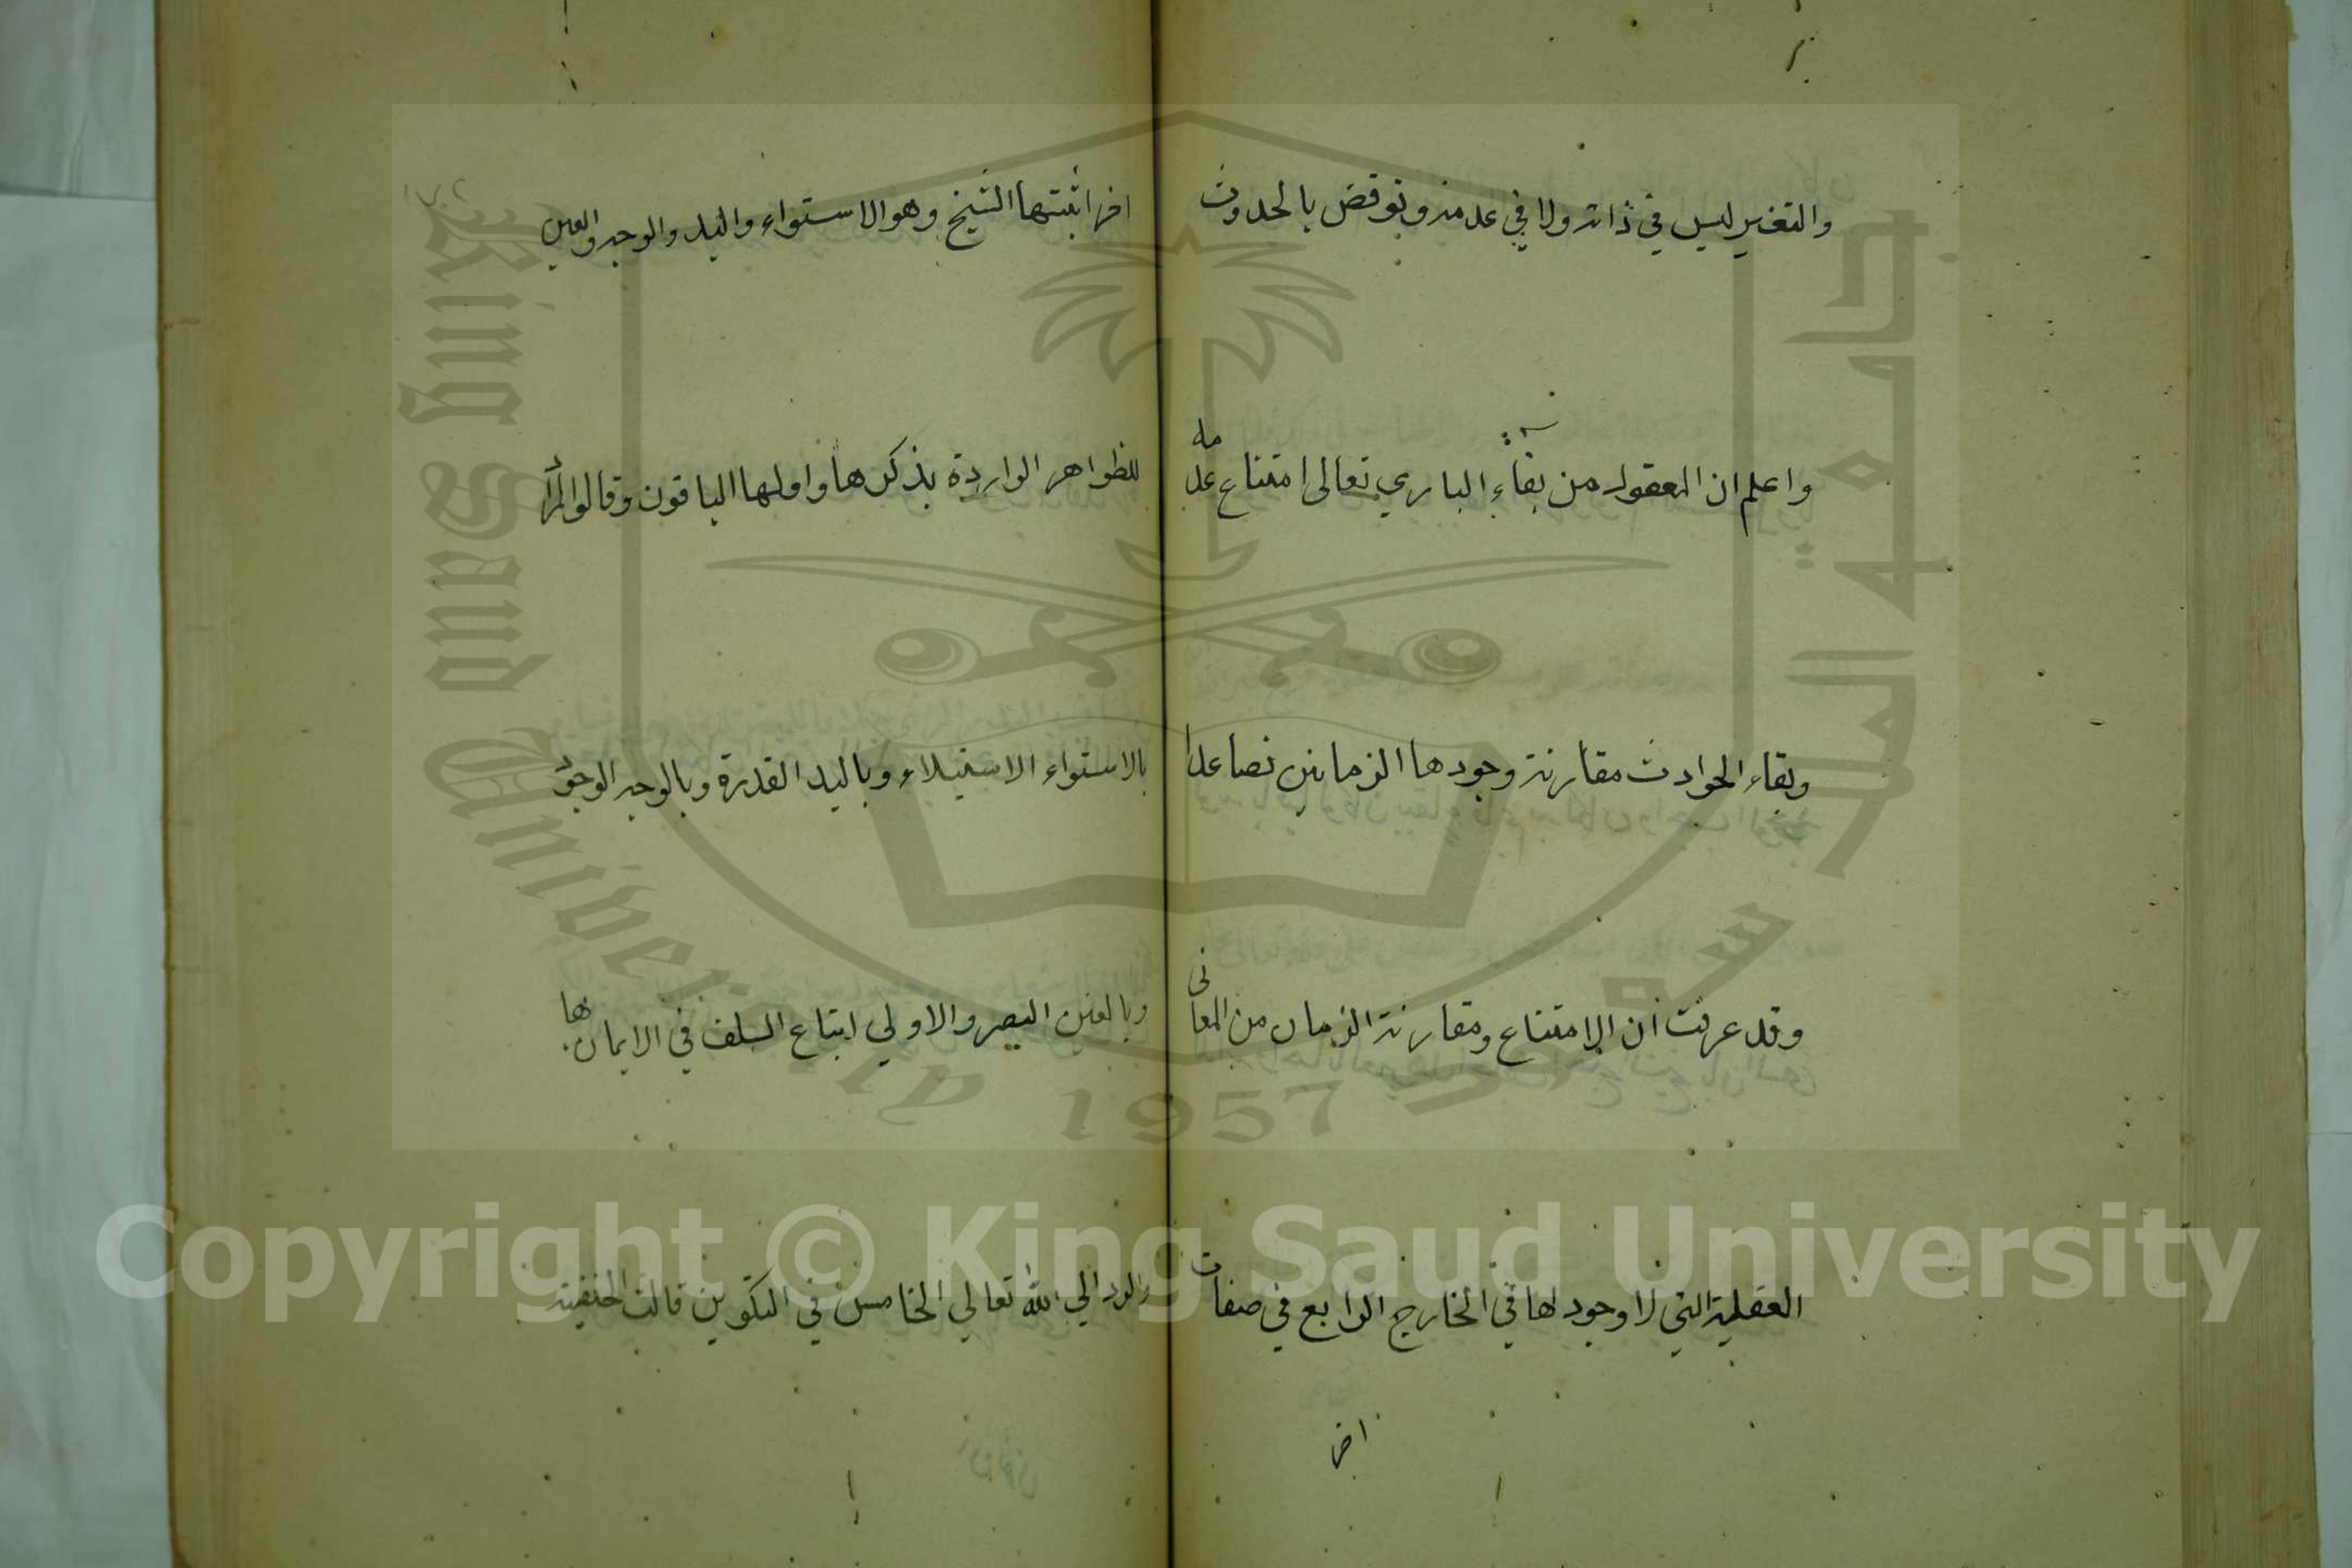 والتغير ليس في ذاته ولا في عدمه ونوقض بالحدوث
واعلم ان المعقول من بقاء الباري تعالى امتناع عدمه
وبقاء الحوادث مقارنة وجودها الزمانين فصاعدا
وقد عرفت ان الامتناع ومقارنة الزمان من المعانى
العقلية التي لا وجود لها في الخارج الرابع في صفات
اخر
اخر اثبتها الشيخ وهو الاستواء واليد والوجه والعين
للظواهر الواردة بذكرها واولها الباقون وقالوا المراد
بالاستواء الاستيلاء وباليد القدرة وبالوجه الوجود
وبالعين البصر والاولي اتباع السلف في الايمان بها
والرد الي الله تعالي الخامس في التكوين قالت الحنفية
Copyright © King Saud University
King Saud University
1957
جامعة الملك سعود